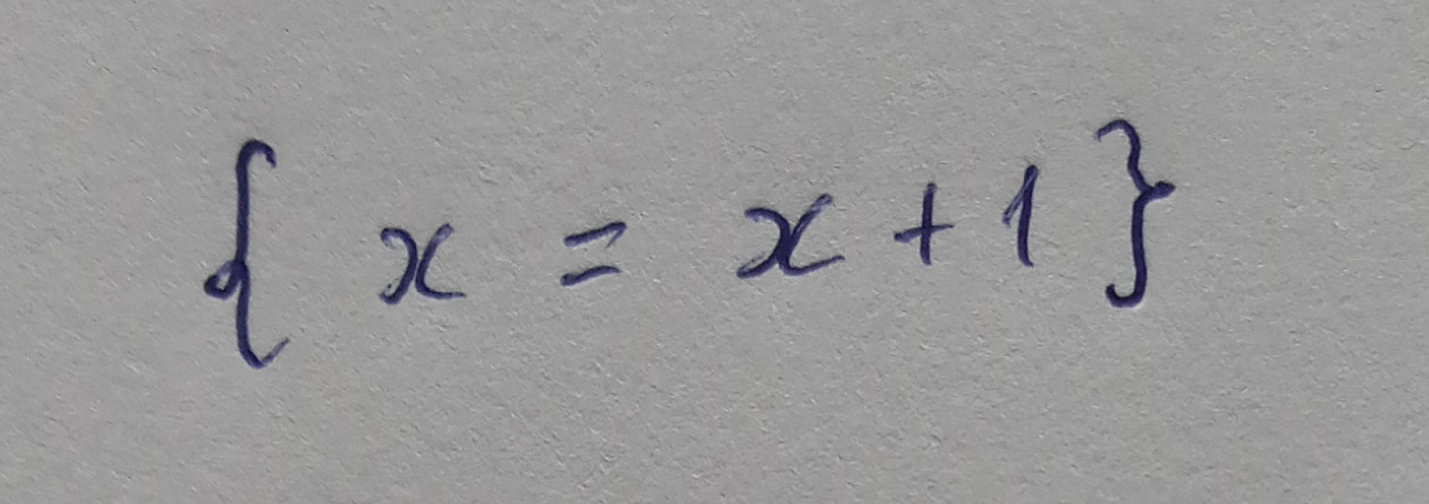 { x = x + 1 }